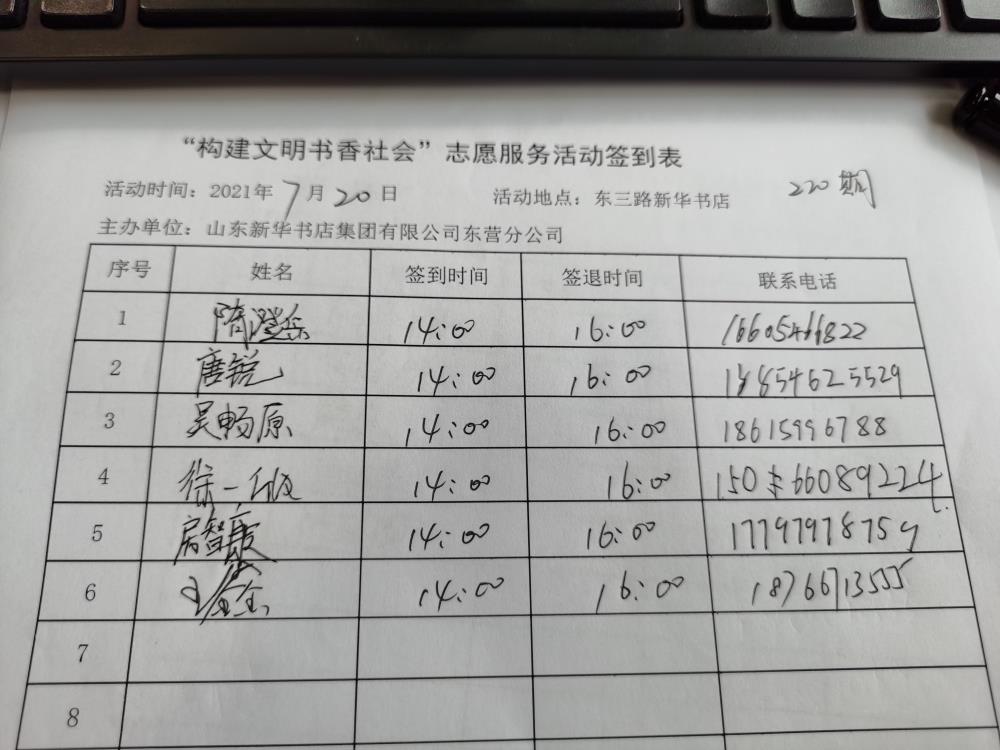 “构建文明书香社会”志愿服务活动签到表
活动时间：2021年7月20日 活动地点：东三路新华书店 220期
主办单位：山东新华书店集团有限公司东营分公司
序号 姓名 签到时间 签退时间 联系电话
1 14:00 16:00 16605466822
2 唐锐 14:00 16:00 18854625529
3 吴畅原 14:00 16:00 18615996788
4 徐一 14:00 16:00
5 房智康 14:00 16:00 17797978759
6 14:00 16:00 18766713555
7
8